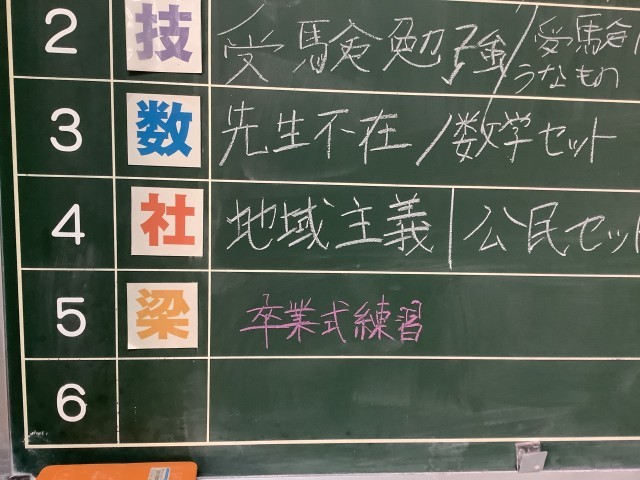 2 技 受験勉強/受験
うなもの
3 数 先生不在/数学セット
4 社 地域主義|公民セット
5 梁 卒業式練習
6